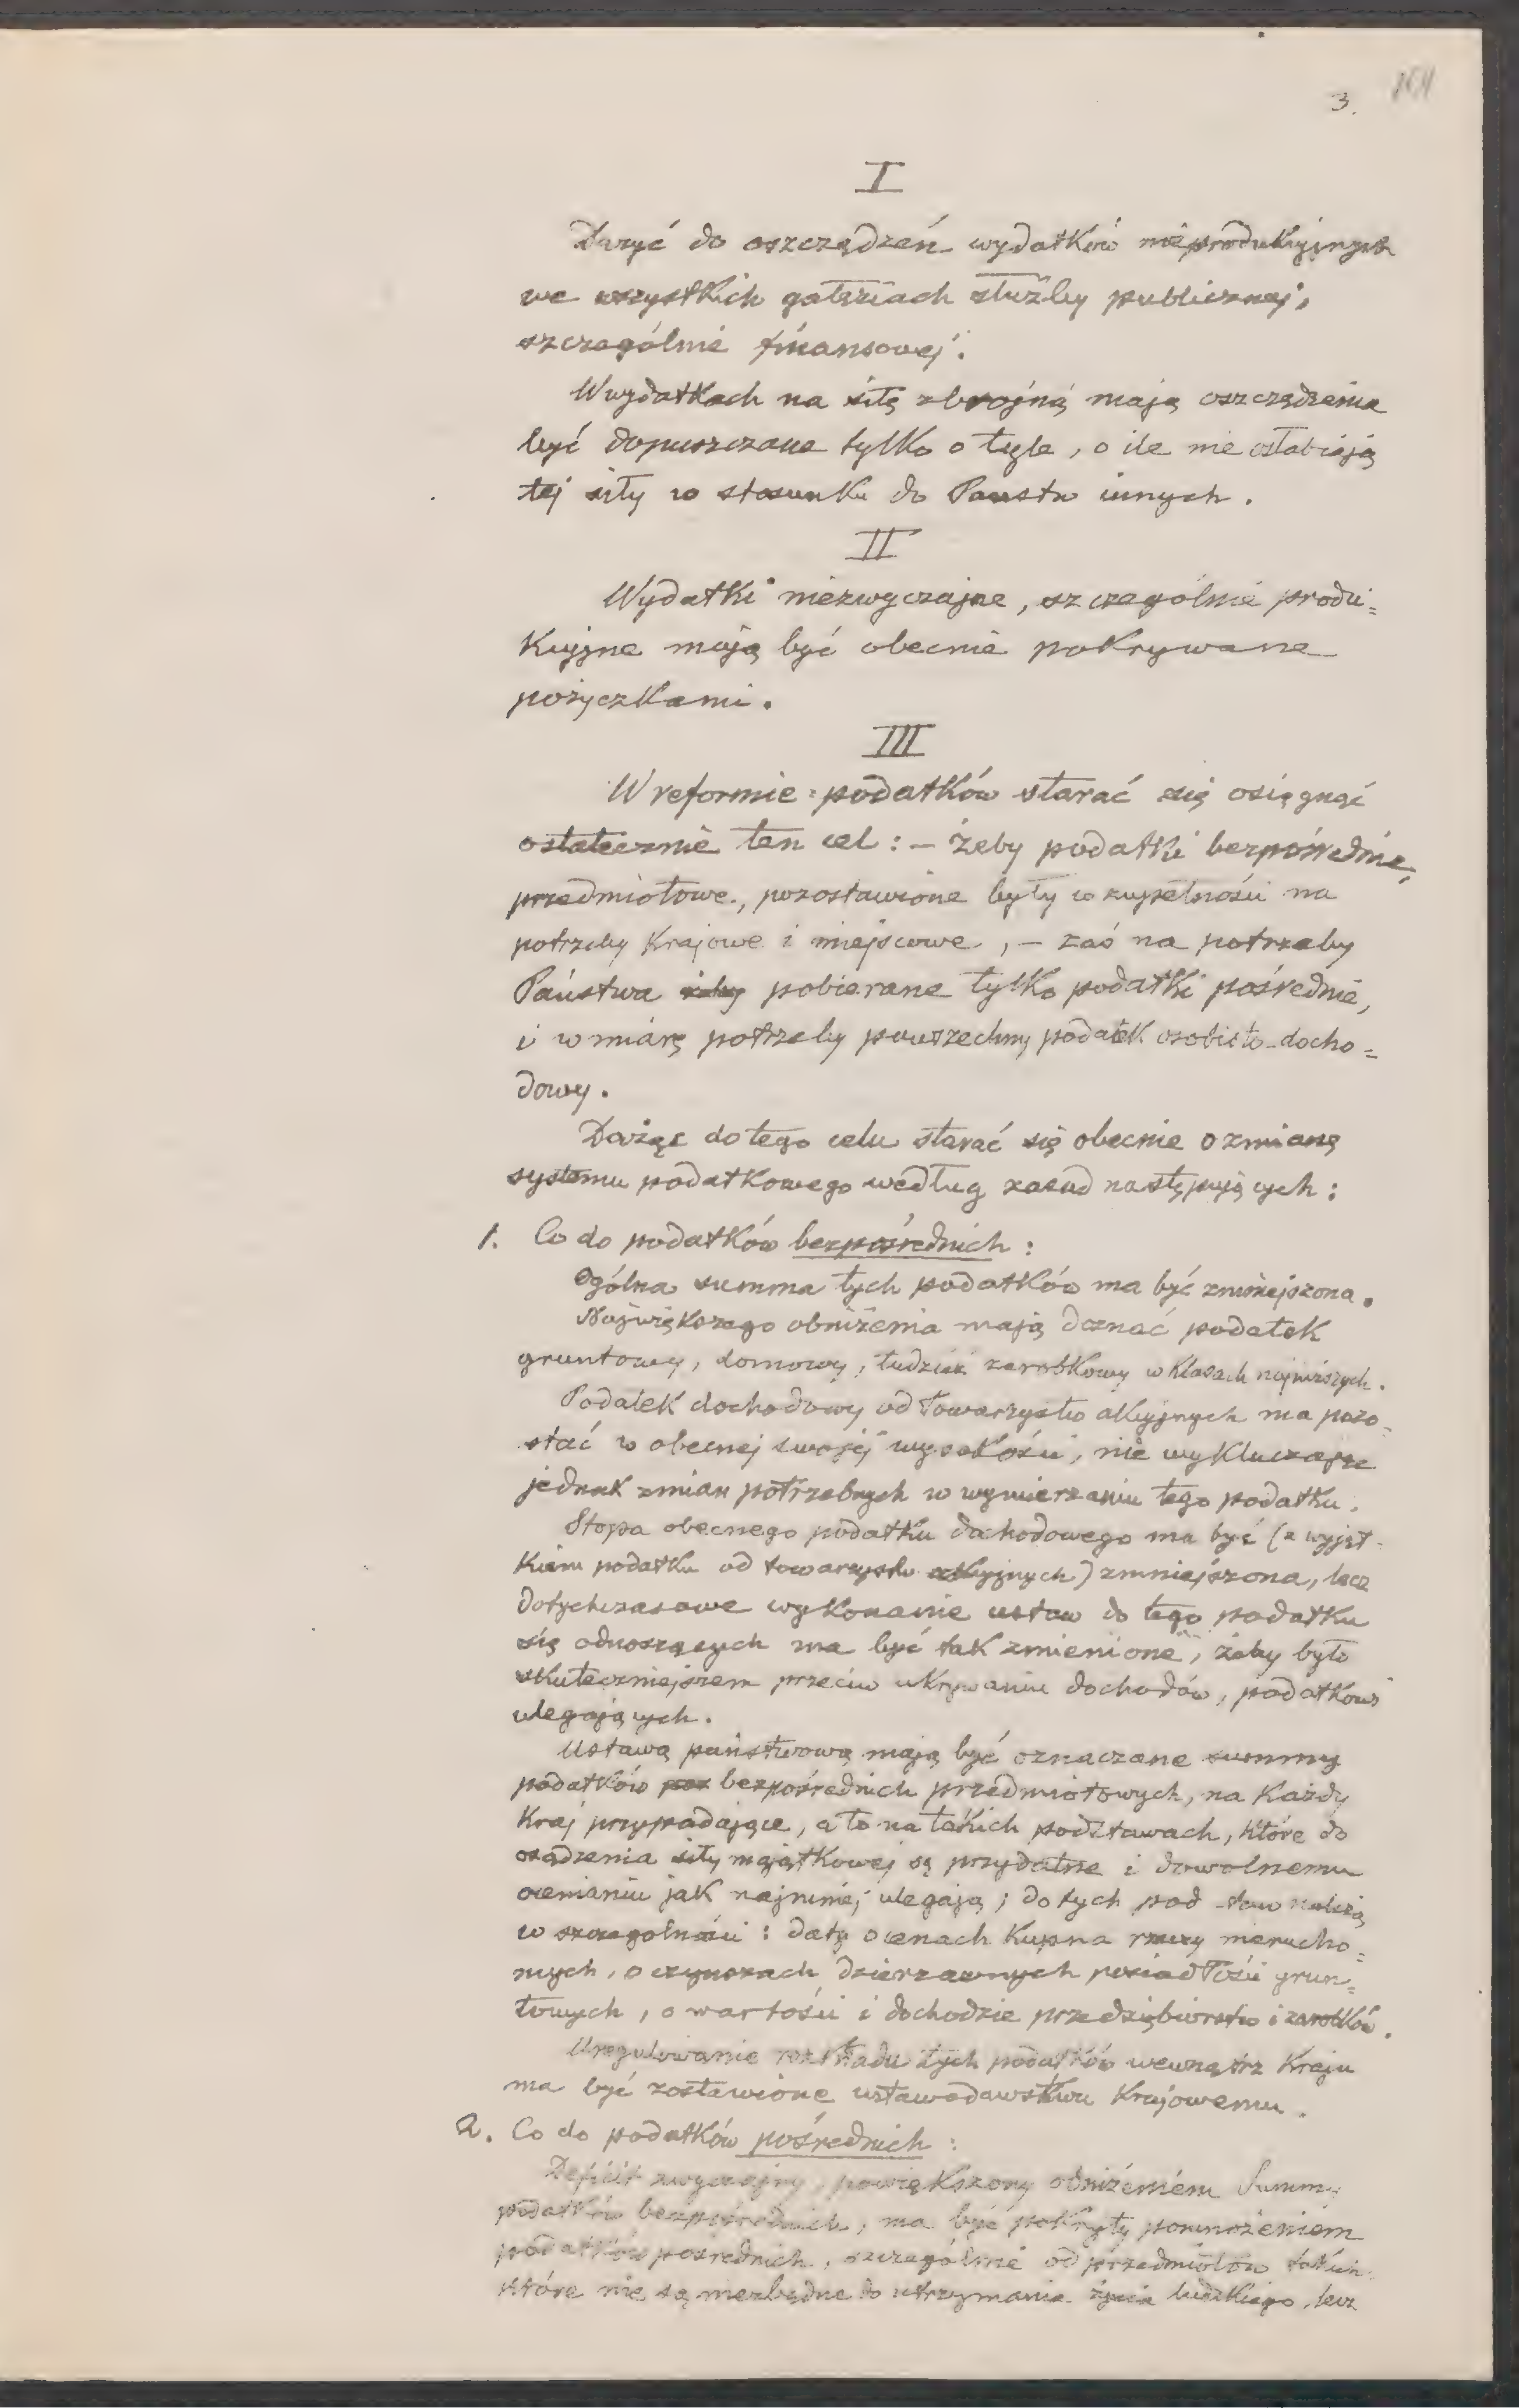 3.
I
Dążyć do oszczędzeń wydatków nieprodukcyjnych
we wszystkich gałęziach służby publicznej,
szczególnie finansowej.
W wydatkach na siłę zbrojną mają oszczędzenia
być dopuszczane tylko o tyle, o ile nie osłabiają
tej siły w stosunku do Państw innych.
II
Wydatki niezwyczajne, szczególnie produ=
kcyjne mają być obecnie pokrywane
pożyczkami.
III
W reformie podatków starać się osiągnąć
ostatecznie ten cel: – żeby podatki bezpośrednie,
przedmiotowe, pozostawione były w zupełności na
potrzeby Krajowe i miejscowe, – zaś na potrzeby
Państwa pobierane tylko podatki pośrednie,
i w miarę potrzeby powszechny podatek osobisto-docho=
dowy.
Dążąc do tego celu starać się obecnie o zmianę
systemu podatkowego według zasad następujących:
1. Co do podatków bezpośrednich:
Ogólna summa tych podatków ma być zmniejszona.
Największego obniżenia mają doznać podatek
gruntowy, domowy, tudzież zarobkowy w klasach najniższych.
Podatek dochodowy od Towarzystw akcyjnych ma pozo-
stać w obecnej swojej wysokości, nie wykluczając
jednak zmian potrzebnych w wymierzaniu tego podatku.
Stopa obecnego podatku dochodowego ma być (z wyjąt-
kiem podatku od towarzystw akcyjnych) zmniejszona, lecz
dotychczasowe wykonanie ustaw do tego podatku
się odnoszących ma być tak zmienione, żeby było
skuteczniejszem przeciw ukrywaniu dochodów, podatkowi
ulegających.
Ustawą państwową mają być oznaczane summy
podatków bezpośrednich przedmiotowych, na każdy
Kraj przypadające, a to na takich podstawach, które do
osądzenia siły majątkowej są przydatne i dowolnemu
ocenianiu jak najmniej ulegają; do tych pod-staw należą
w szczególności: daty o cenach kupna rzeczy nierucho=
mych, o czynszach dzierżawnych posiadłości grun=
towych, o wartości i dochodzie przedsiębiorstw i zarobków.
Uregulowanie rozkładu tych podatków wewnątrz Kraju
ma być zostawione ustawodawstwu Krajowemu.
2. Co do podatków pośrednich:
Deficit zwyczajny, powiększony obniżeniem Summy
podatków bezpośrednich, ma być pokryty pomnożeniem
podatków pośrednich, szczególnie od przedmiotów takich
które nie są niezbędne do utrzymania życia ludzkiego, lecz